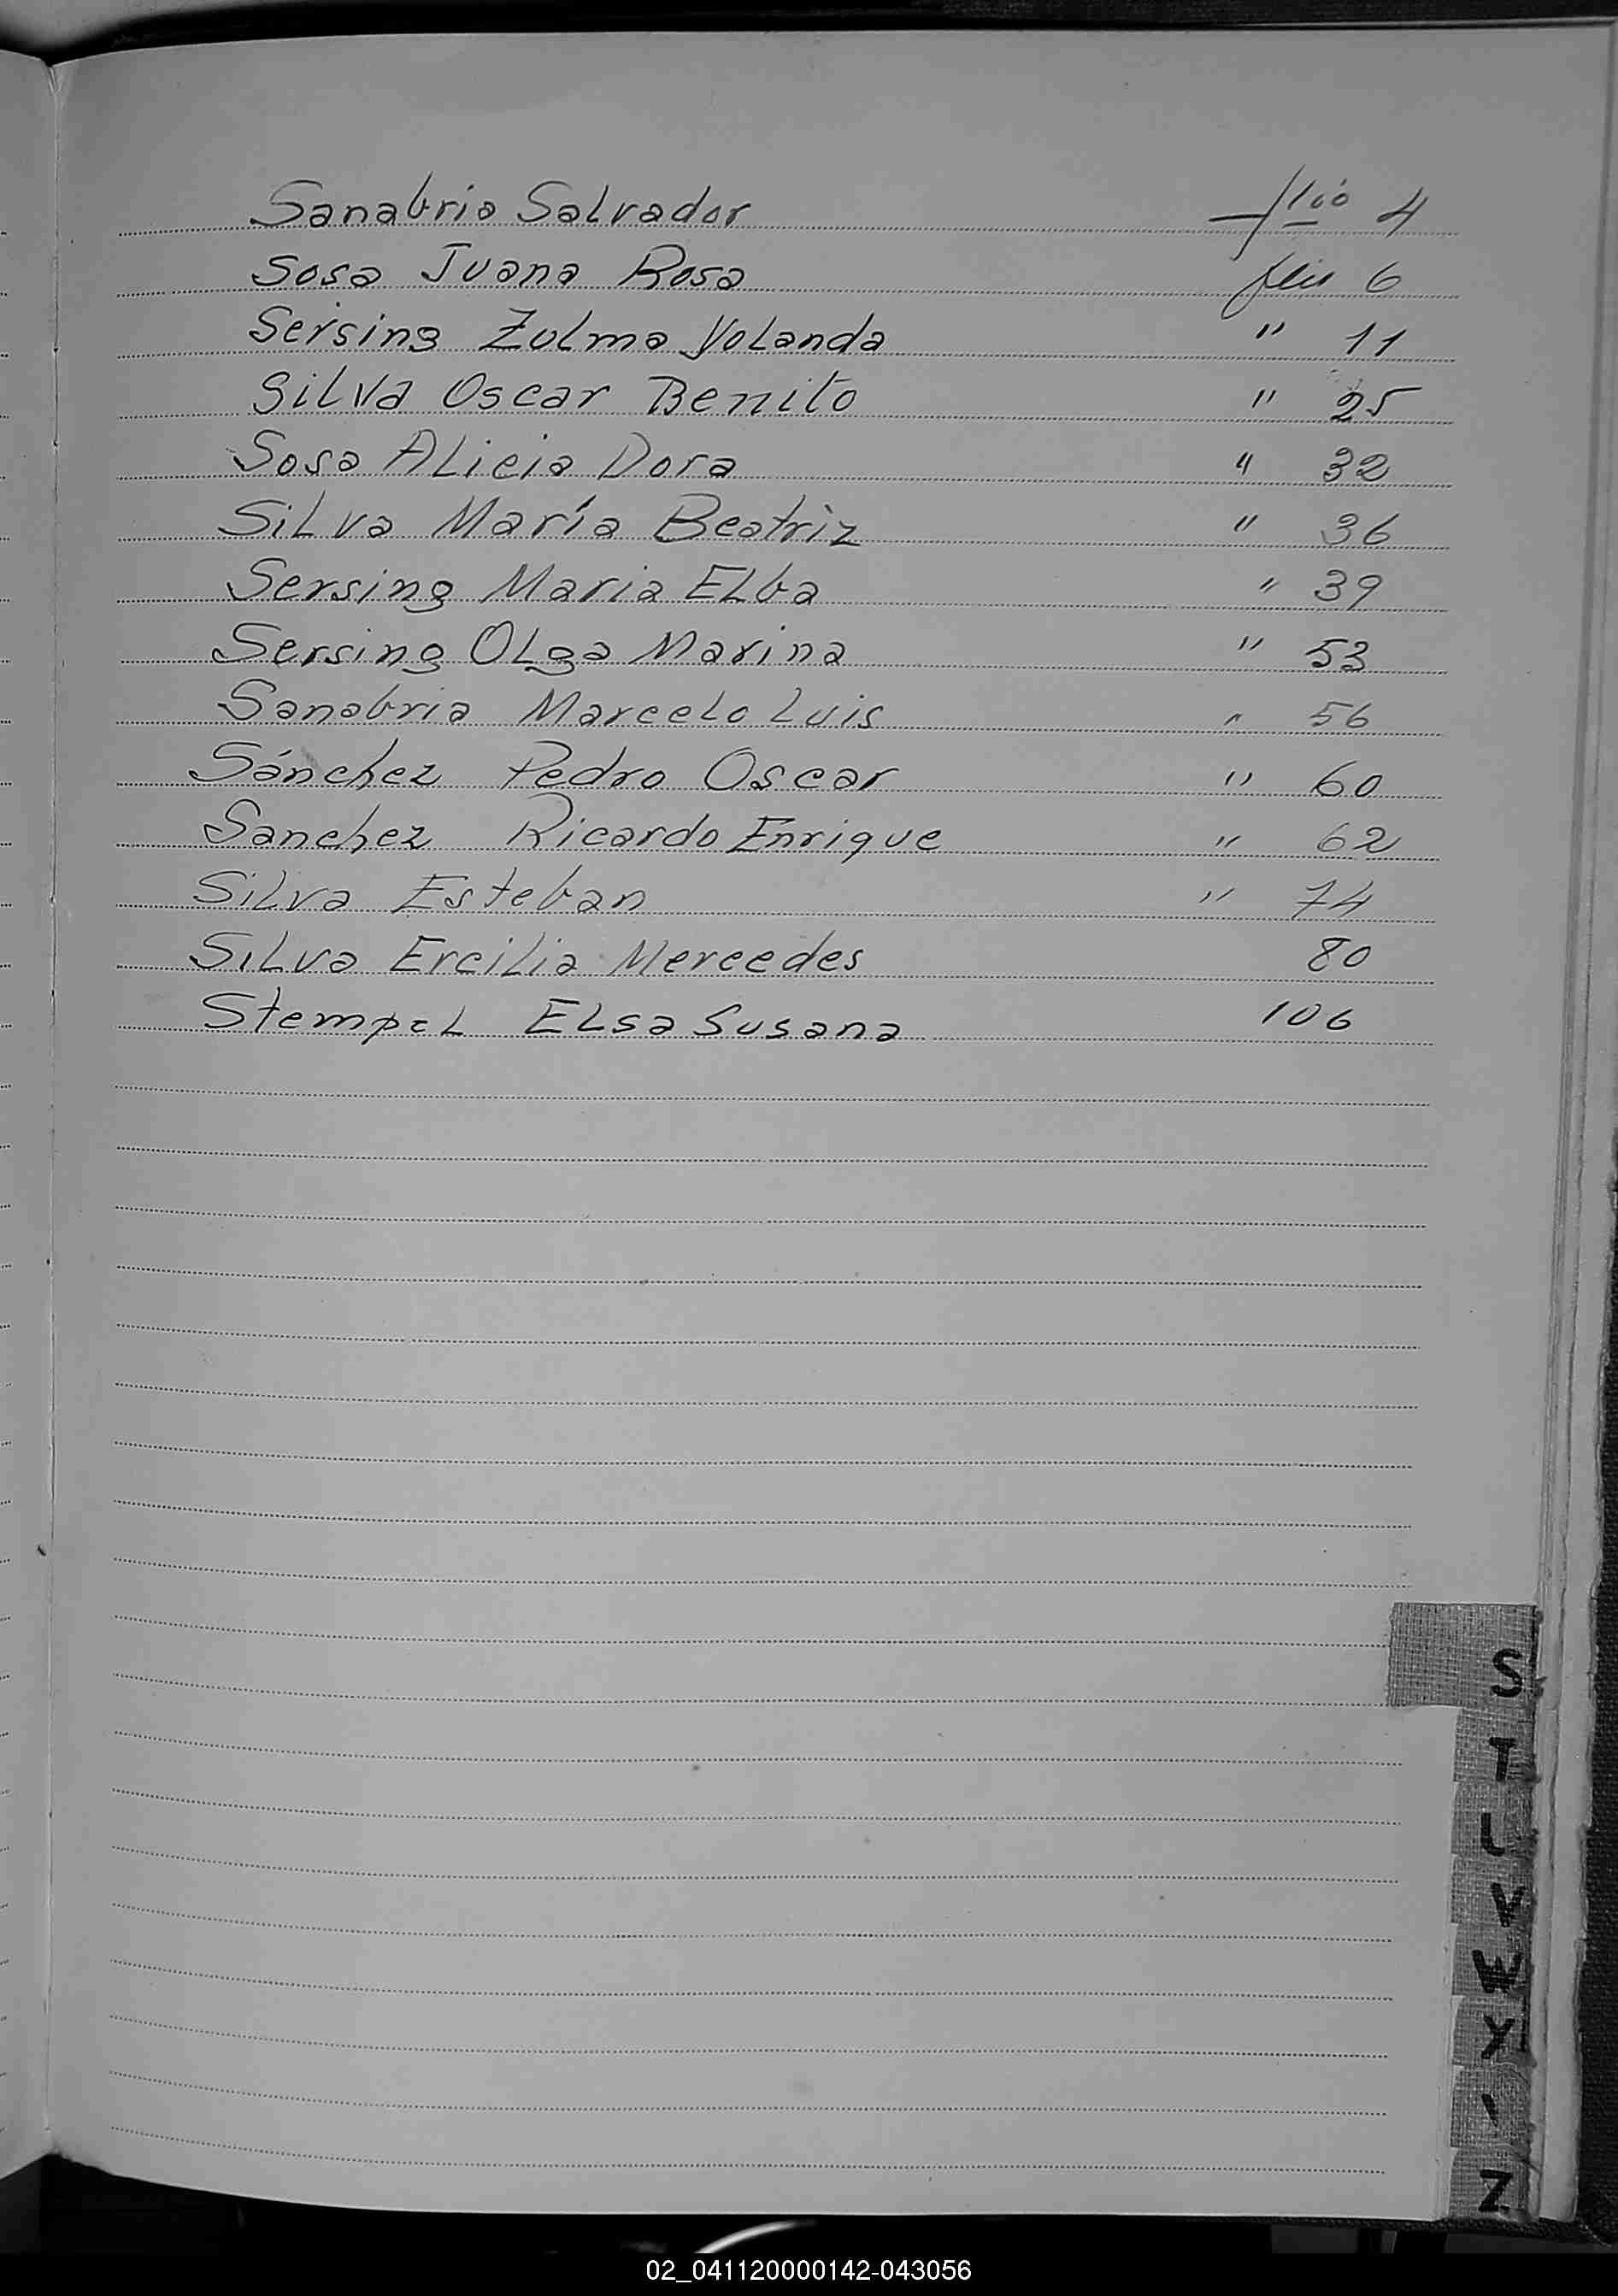 Sanabria Salvador flio 4
Sosa Juana Rosa flio 6
Sersing Zulma Yolanda " 11
Silva Oscar Benito " 25
Sosa Alicia Dora " 32
Silva María Beatriz " 36
Sersing Maria Elba " 39
Sersing Olga Marina " 53
Sanabria Marcelo Luis " 56
Sánchez Pedro Oscar " 60
Sanchez Ricardo Enrique " 62
Silva Esteban " 74
Silva Ercilia Mercedes 80
Stempel Elsa Susana 106
S
T
V
X
Z
02_041120000142-043056